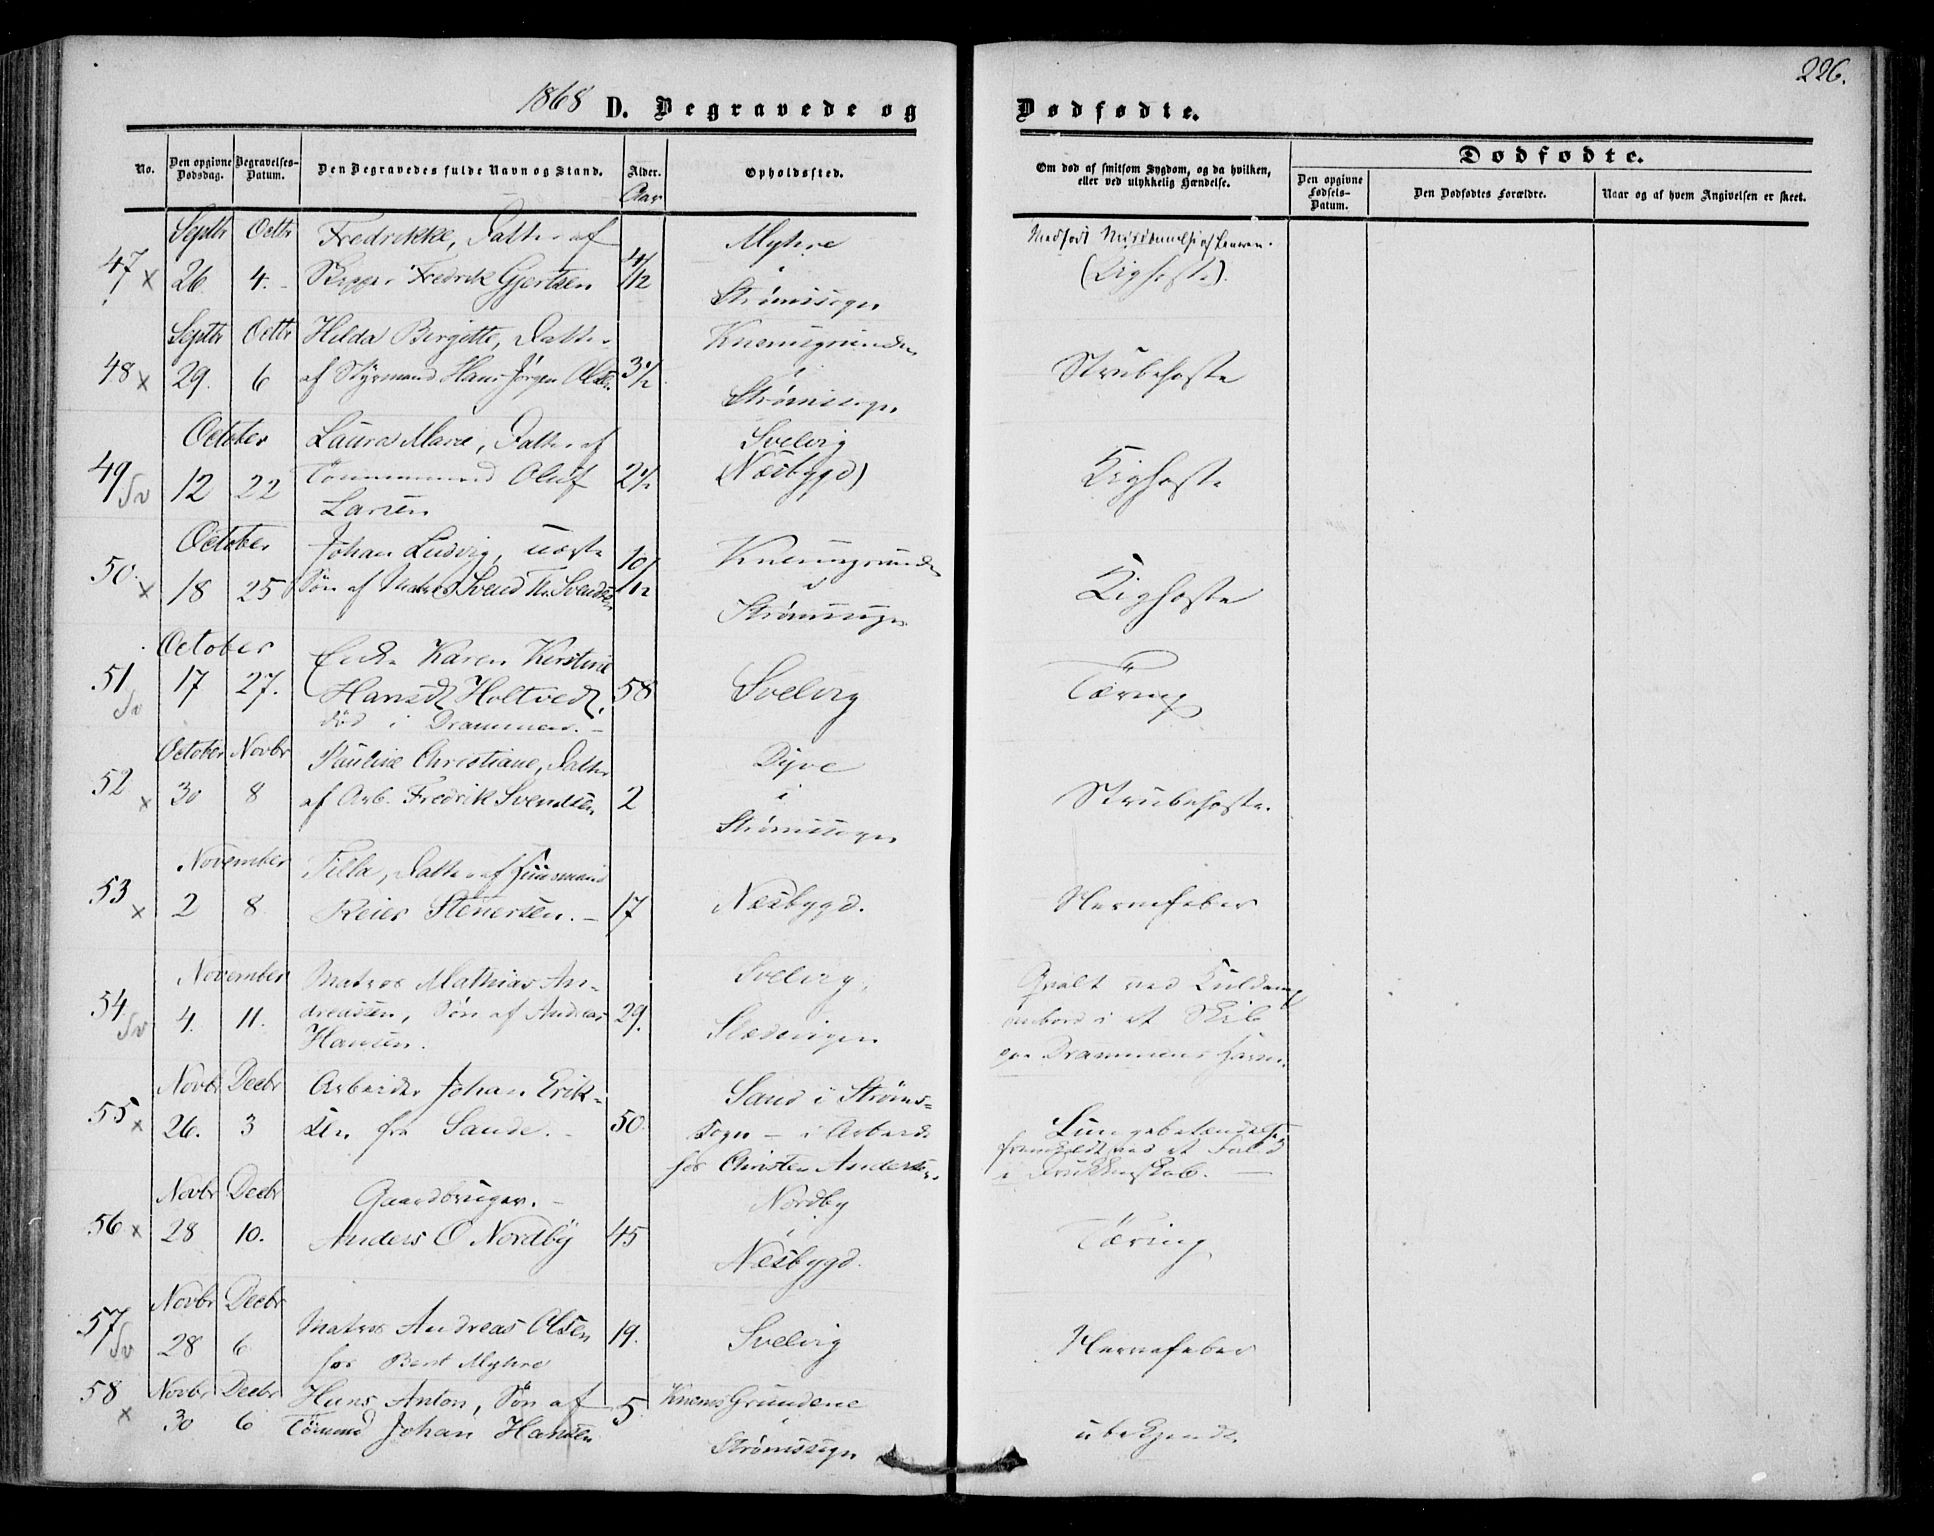 1868 D. Begravede og Dødfødte. 226.
No. Den opgivne Dødsdag. Begravelses-Datum. Den Begravedes fulde Navn og Stand. Alder. Opholdssted. Om død af smitsom Sygdom, og da hvilken, eller ved ulykkelig Hændelse.
Aar
Dødfødte.
Den opgivne Fødsels-Datum. Den Dødfødtes Forældre. Naar og af hvem Angivelsen er skeet.
Septbr Octbr Fredrikke, Datter af Myhre Medfødt
47 x 26. 4. Skipper Fredrik Gjertsen 4/12 i (Kighoste).
Strømssogn
Septbr Octbr Hilda Birgitte, Datter Knemsgrunden
48 x 29. 6 af Styrmand Hans Jørgen Olsen 3 1/2 i Strubehoste
Strømssogn
October Laura Marie, Datter af Svelvig
49 Sv 12 22 Tømmermand Oluf 2 1/2 (Nesbygd) Kighoste
Larsen
October Johan Ludvig, uægte 10/12 Knemsgrunden
50. x 18 25 Søn af Matros Svend Th. Svendsen i Kighoste
Strømssogn
October Enke Karen Kirstine
51 Sv 17 27. Hansd. Holtvedt, 58 Svelvig Tæring
død i Drammen. –
October Novbr Pauline Christiane, Datter Dyve
52 x 30 8 af Arb. Fredrik Svendsen 2 i Strubehoste.
Strømssogn
November Tilla, Datter af Huusmand
53 x 2 8 Reier Stenersen. – 17 Nesbygd. Nervefeber
November Matros Mathias An- Svelvig, Qvalt ved Kuldamp
54 Sv 4. 11. dreassen, Søn af Andreas 29. ombord i et Skib
Hansen. paa Drammens Havn.
Novbr Decbr Arbeider Johan Erik- Sand i Strøms-
55 x 26. 3 sen fra Sande. – 50. sogn – i Arbeide Lungebetændelse
hos Christen Andersen. fremkaldt ved et Fald
i Drukkenskab. –
Novbr Decbr Gaardbruger. – Nordby
56 x 28 10. Anders O Nordby 45 i Tæring
Næsbygd.
Novbr Decbr
57 Sv 28 6 Matros Andreas Olsen 19. Svelvig Nervefeber
hos Bent Myhre
58 x Novbr Decbr Hans Anton, Søn af 5. Knems Grundene
30 6 Tømmd Johan Hansen i ubekjendt.
Strømssogn